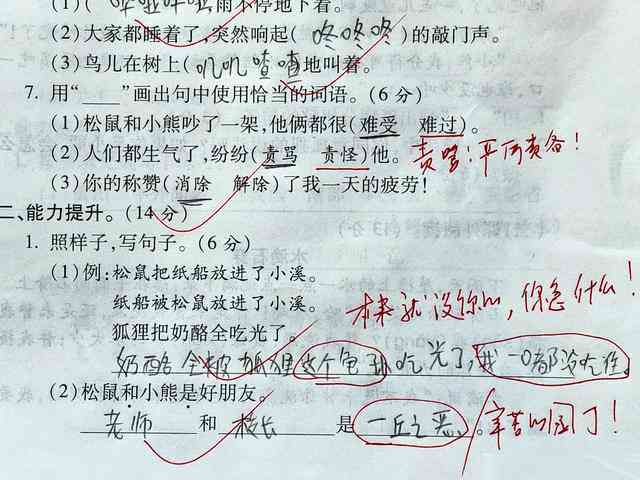 (1)( 哗啦哗啦雨不停地下着。
(2)大家都睡着了,突然响起( 咚咚咚 )的敲门声。
(3)鸟儿在树上( 叽叽喳喳地叫着。
7. 用“____”画出句中使用恰当的词语。(6分)
(1)松鼠和小熊吵了一架,他俩都很(难受 难过)。
(2)人们都生气了,纷纷(责骂 责怪)他。 责骂:严厉责备!
(3)你的称赞(消除 解除)了我一天的疲劳!
二、能力提升。(14分)
1. 照样子,写句子。(6分)
(1)例:松鼠把纸船放进了小溪。
纸船被松鼠放进了小溪。
本来就没你的,你急什么!
狐狸把奶酪全吃光了。
奶酪全被狐狸这个龟孙吃光了,我一口都没吃住。
(2)松鼠和小熊是好朋友。
老师 和 校长 是 一丘之恶 。 辛苦的园丁!